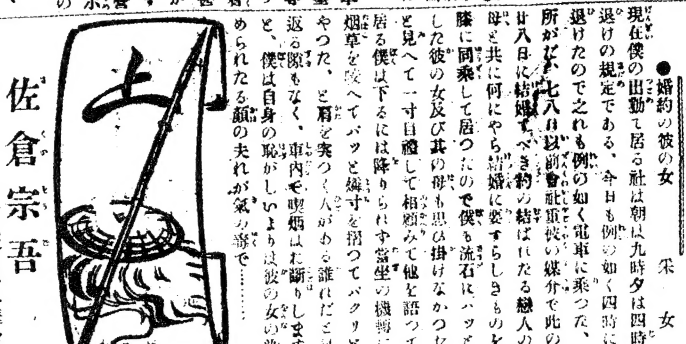 ●婚約の彼の女　　釆　女
現在僕の出勤て居る社は朝は九時夕は四時
退けの規定である、今日も例の如く四時に
退けたので之れも例の如く電車に乗つた、
所がだ、七八日以前會社重役の媒介で此の
廿八日に結婚すべき約の結ばれたる戀人の
母と共に何にやら結婚に要すらしきものを
膝に同乗して居つたので僕も流石にハッと
した彼の女及び其の母も思ひ掛けなかつた
と見へて一寸目禮して相顧みて他を語つて
居る僕は下るには降りられず當坐の機轉に
烟草を咬へてパッと燐寸を摺つてパクリと
やつた、と肩を突つく人がある誰れだと見
返る隙もなく、車内で喫烟はお斷りします
と、僕は自身の恥しいよりは彼の女の
められたる顔の夫れが氣の毒で………
上
佐倉宗吾